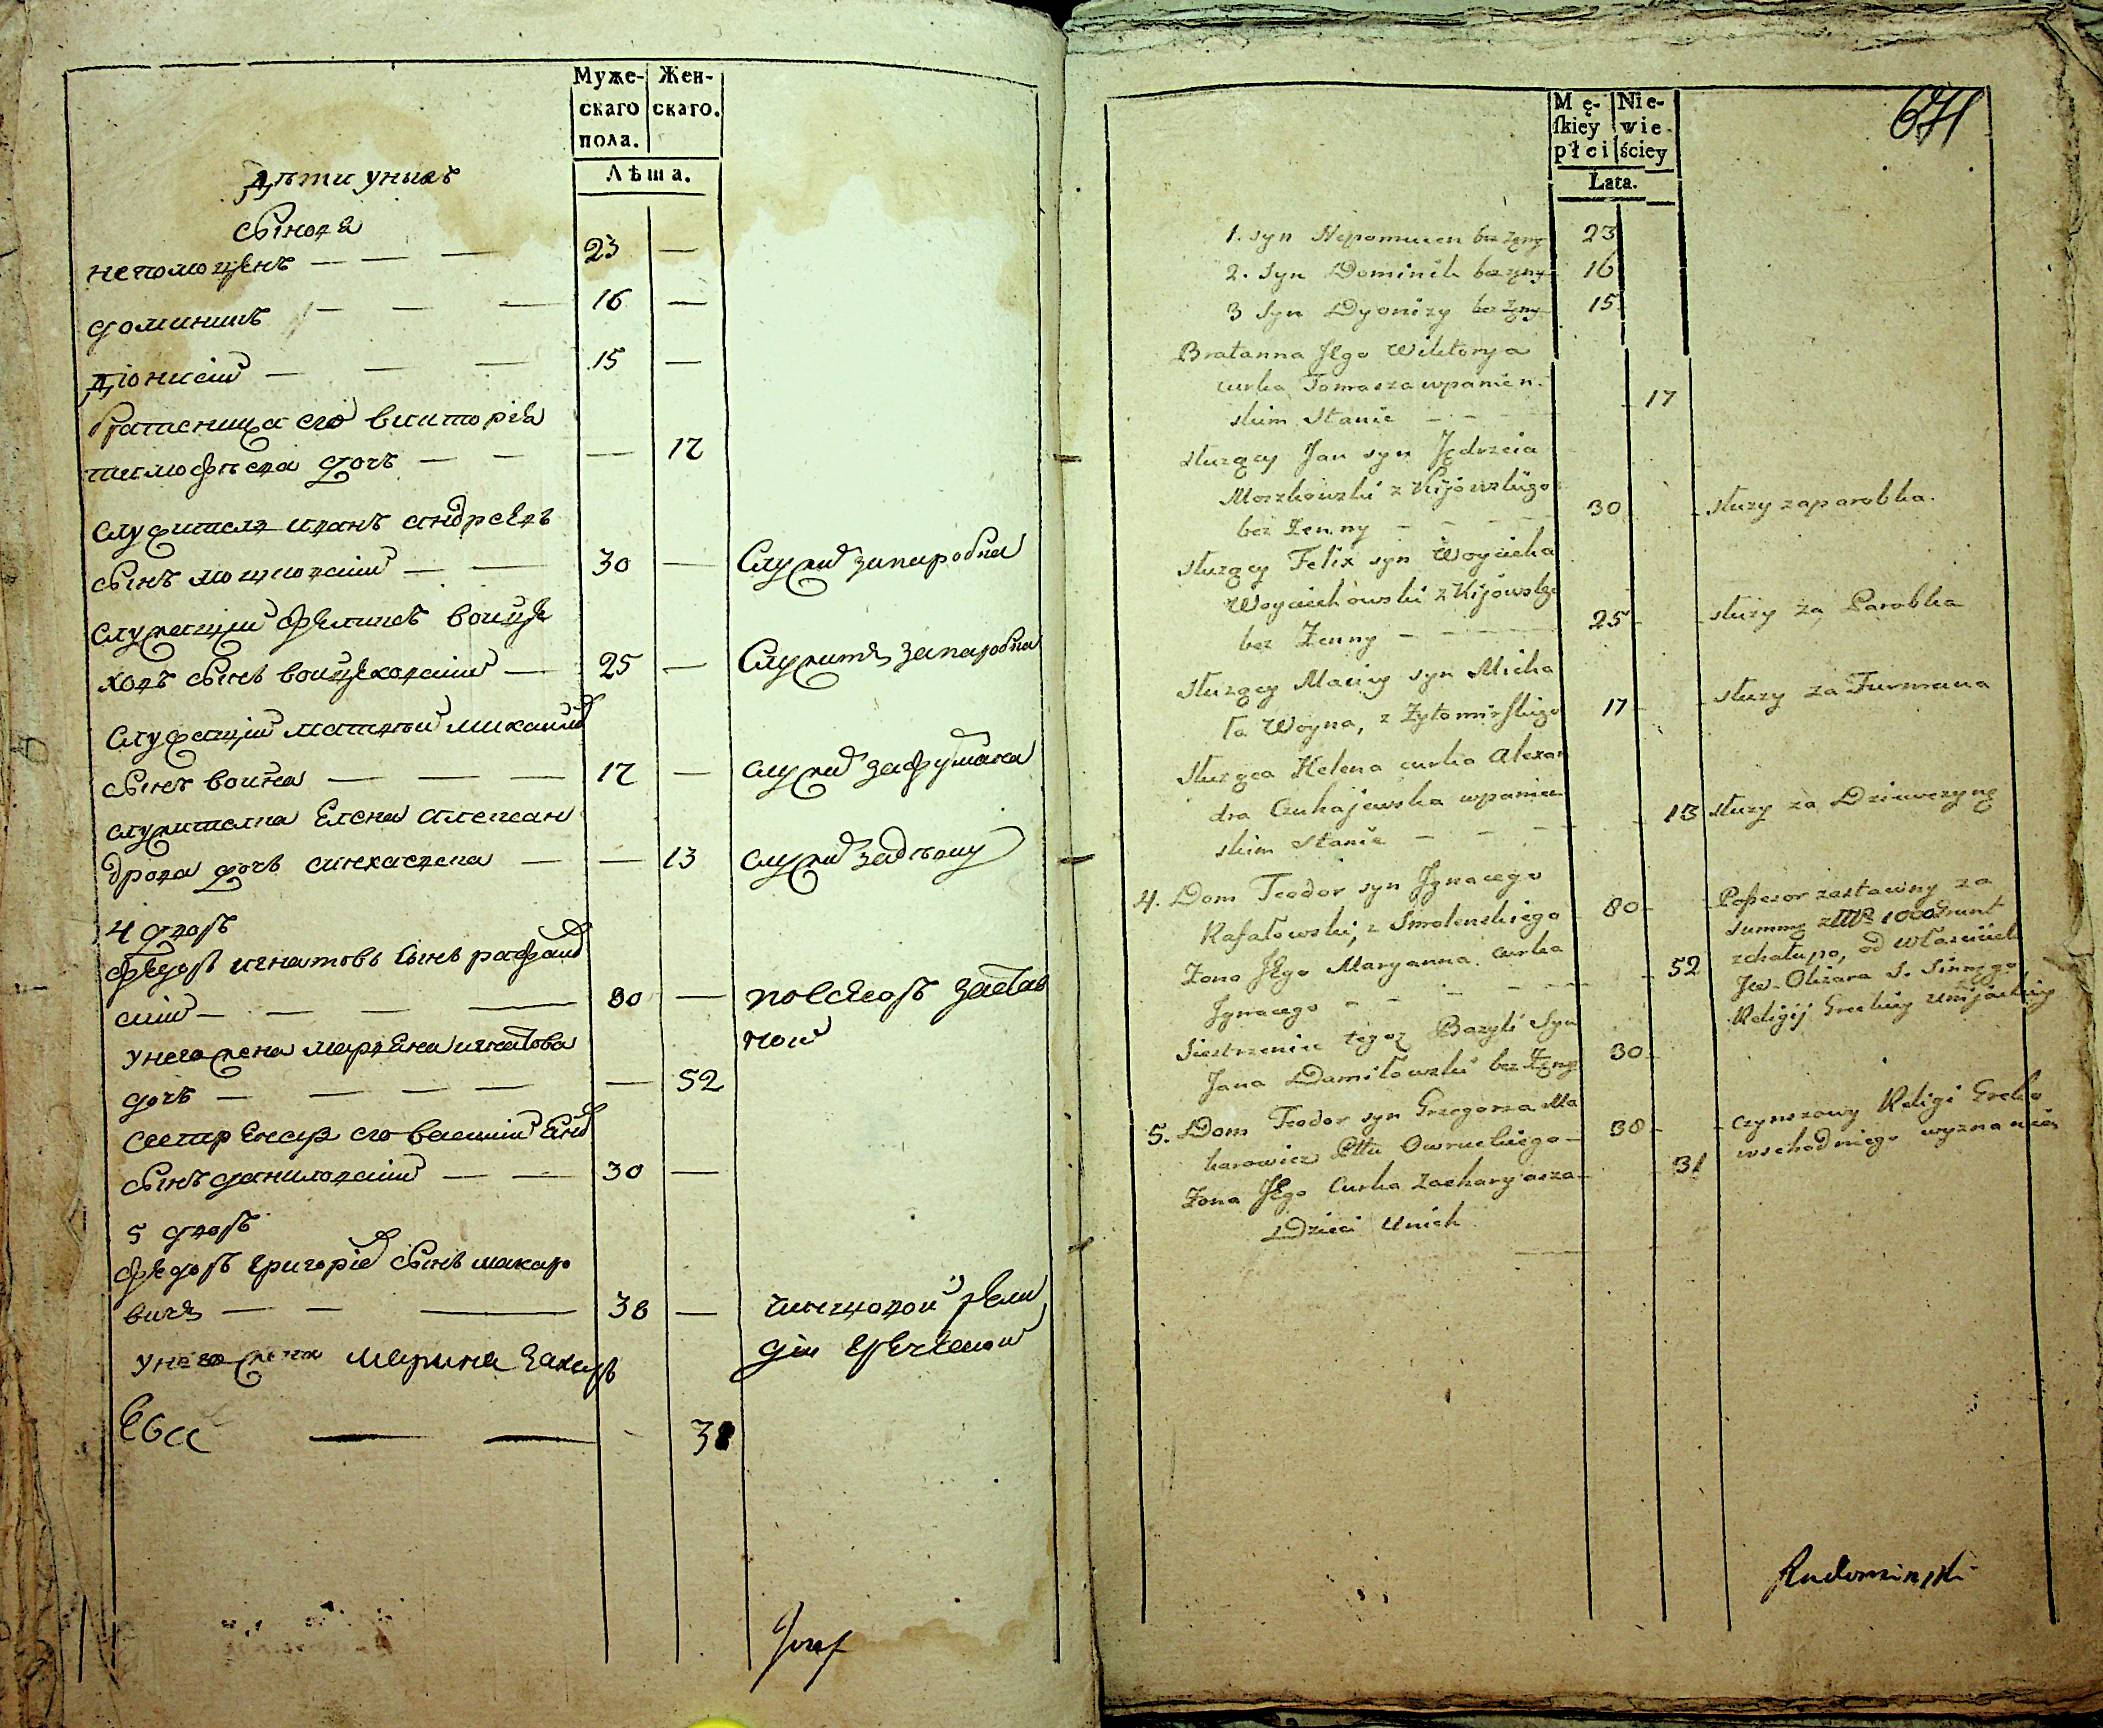 Муже- Жен-
скаго скаго.
пола.
Лѣта.
Дѣти уныхъ
сынова
непомуценъ — — — 23 —
доминикъ — — — 16 —
Діонисій — — — 15 —
братеница его викторія
тимофѣева дочь — — — 17
служитель иванъ андреевъ
сынъ мошковский — — 30 — Служи запаробка
служащий феликсъ войце
ховъ сынъ войцеховский — 25 — Служитъ запаробка
служащій матвѣй михайлов
сынъ война — — — 17 — служи зафурмана
служителка Елена алексан
дрова дочь — — 13 служи задѣвку
4 дворъ
федоръ игнатовъ сынъ рафалов
ский — — — 80 — посесоръ застав
ной
унего жена марьена игнатова
дочь — — — — — 52
сестренецъ его василий
сынъ даниловский — — 30 —
5 дворъ
федоръ григорьев сынъ макаро
вичъ — — — 38 — чиншовой рели
гіи греческой
унего жена марина захарь
Ева — — 31
Józef
671
Mę- Nie-
ſkiey wie-
płci ściey
Lata.
1. syn Nepomucen bez żęny 23
2. Syn Dominik bez żęny 16
3 Syn Dyonizy bez żęny 15
Bratanna Jego Wiktorya
curka Tomasza w panień-
skim Stanie — — 17
służący Jan syn Jędrzeia
Moszkowski z Kijowskiego
bez Żenny — — — 30 służy za parobka.
służący Felix syn Woyciecha
Woyciechowski z Kijowskgo
bez Żenny — — 25 służy za Parobka
służący Maciey syn Micha
ła Woyna, z Żytomirskiego 17 służy za Furmana
służąca Helena curka Alexan
dra Czuhajewska w panień
skim Stanie — — — 13 służy za Dziewczynę
4. Dom Teodor syn Jgnacego
Rafałowski, z Smolenskiego 80 Possesor zastawny za
summę 1000 Grunt
z chałupą, od właściciela
Żona Jego Maryanna curka
Jgnacego — — — — 52 Jw. Olizara
Religij Greckiey Unijackiey
Siestrzeniec tegoż Bazyli Syn
Jana Daniłowski bez Żęny 30
5. Dom Teodor syn Grzegorza Ma
karowicz Pttu Owruckiego — 38 — Czynszowy Religi Grecko
wschodniego wyznania
Żona Jego Curka Zacharyasza — 31
Dzieci Unich
Rudominski